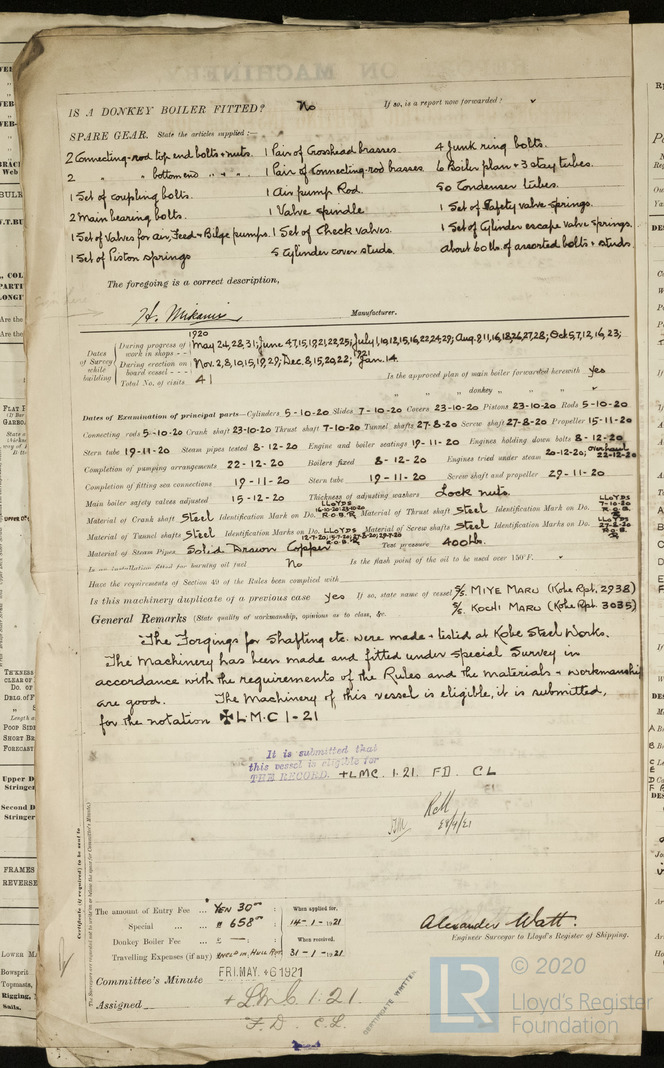 IS A DONKEY BOILER FITTED? No If so, is a report now forwarded?
SPARE GEAR. State the articles supplied:—
2 Connecting-rod top end bolts & nuts. 1 Pair of Crosshead brasses. 4 Junk ring bolts.
2 " " bottom end " " " 1 Pair of Connecting-rod brasses 6 Boiler plain & 3 stay tubes.
1 Set of coupling bolts. 1 Air pump Rod. 50 Condenser tubes.
2 Main bearing bolts. 1 Valve spindle 1 Set of Safety valve springs.
1 Set of Valves for air, Feed & Bilge pumps. 1 Set of Check valves. 1 Set of Cylinder escape valve springs.
1 Set of Piston springs 5 Cylinder cover studs. about 60 lb. of assorted bolts & studs.
The foregoing is a correct description,
H. Mikami Manufacturer.
1920
Dates of Survey while building
During progress of work in shops - - May 24,28,31; June 4,7,15,19,21,22,25; July 1,10,12,15,16,22,24,29; Aug. 8,11,16,18,26,27,28; Oct 5,7,12,16,23;
During erection on board vessel - - - Nov. 2,8,10,15,19,29; Dec. 8,15,20,22; 1921 Jan. 14.
Total No. of visits 41 Is the approved plan of main boiler forwarded herewith yes
" " " donkey "
Dates of Examination of principal parts—Cylinders 5-10-20 Slides 7-10-20 Covers 23-10-20 Pistons 23-10-20 Rods 5-10-20
Connecting rods 5-10-20 Crank shaft 23-10-20 Thrust shaft 7-10-20 Tunnel shafts 27-8-20 Screw shaft 27-8-20 Propeller 15-11-20
Stern tube 19-11-20 Steam pipes tested 8-12-20 Engine and boiler seatings 19-11-20 Engines holding down bolts 8-12-20
Completion of pumping arrangements 22-12-20 Boilers fixed 8-12-20 Engines tried under steam 20-12-20; overhauled 22-12-20
Completion of fitting sea connections 19-11-20 Stern tube 19-11-20 Screw shaft and propeller 29-11-20
Main boiler safety valves adjusted 15-12-20 Thickness of adjusting washers Lock nuts.
Material of Crank shaft Steel Identification Mark on Do. LLOYDS R.O.B. Material of Thrust shaft Steel Identification Mark on Do. LLOYDS 7-10-20 R.O.B.
Material of Tunnel shafts Steel Identification Marks on Do. LLOYDS R.O.B. Material of Screw shafts Steel Identification Marks on Do. LLOYDS 27-8-20 R.O.B.
Material of Steam Pipes Solid Drawn Copper Test pressure 400 lbs.
Is an installation fitted for burning oil fuel No Is the flash point of the oil to be used over 150°F.
Have the requirements of Section 49 of the Rules been complied with
Is this machinery duplicate of a previous case yes If so, state name of vessel S/S. MIYE MARU (Kobe Rpt. 2938)
S/S. KOCHI MARU (Kobe Rpt. 3035)
General Remarks (State quality of workmanship, opinions as to class, &c.
The Forgings for Shafting etc. were made & tested at Kobe Steel Works.
The Machinery has been made and fitted under special Survey in
accordance with the requirements of the Rules and the materials & workmanship
are good. The Machinery of this vessel is eligible, it is submitted,
for the notation ✠ L.M.C 1-21
It is submitted that
this vessel is eligible for
THE RECORD. + LMC. 1.21. FD. CL
The amount of Entry Fee ... YEN 30.00 When applied for,
Special ... " 658.00 14-1-1921
Donkey Boiler Fee ... £ — When received,
Travelling Expenses (if any) 31-1-1921
Alexander Watt.
Engineer Surveyor to Lloyd's Register of Shipping.
Committee's Minute FRI. MAY. 6 1921
Assigned + LMC 1.21.
F.D. C.L.
CERTIFICATE WRITTEN
LR © 2020
Lloyd's Register
Foundation